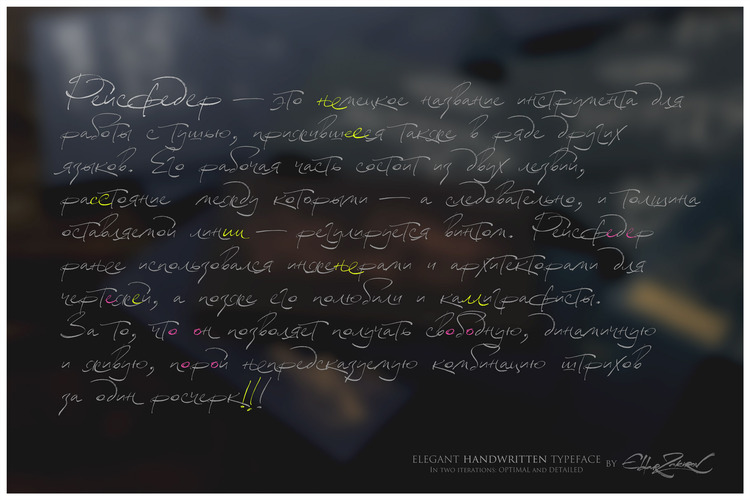 Рейсфедер — это немецкое название инструмента для
работы с тушью, прижившееся также в ряде других
языков. Его рабочая часть состоит из двух лезвий,
расстояние между которыми — а следовательно, и толщина
оставляемой линии — регулируется винтом. Рейсфедер
ранее использовался инженерами и архитекторами для
чертежей, а позже его полюбили и каллиграфисты.
За то, что он позволяет получать свободную, динамичную
и живую, порой непредсказуемую комбинацию штрихов
за один росчерк!!!
ELEGANT HANDWRITTEN TYPEFACE BY
IN TWO ITERATIONS: OPTIMAL AND DETAILED